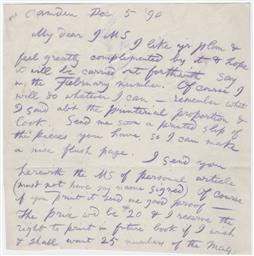 Camden Dec 5 '90
My dear J M S
I like yr plan &
feel greatly complimented by it, & hope
it will be carried out forthwith say
in the February number. Of course I
will do whatever I can — remember what
I said abt the printerial proportion &
look. Send me soon a printed slip of
the pieces you have, so I can make
a nice flush page.
I send you
herewith the MS of personal article
(must not have my name signed) Of course
if you print it send me good proofs —
The price wd be $20 & I reserve the
right to print in future book if I wish
& shall want 25 numbers of the Mag.